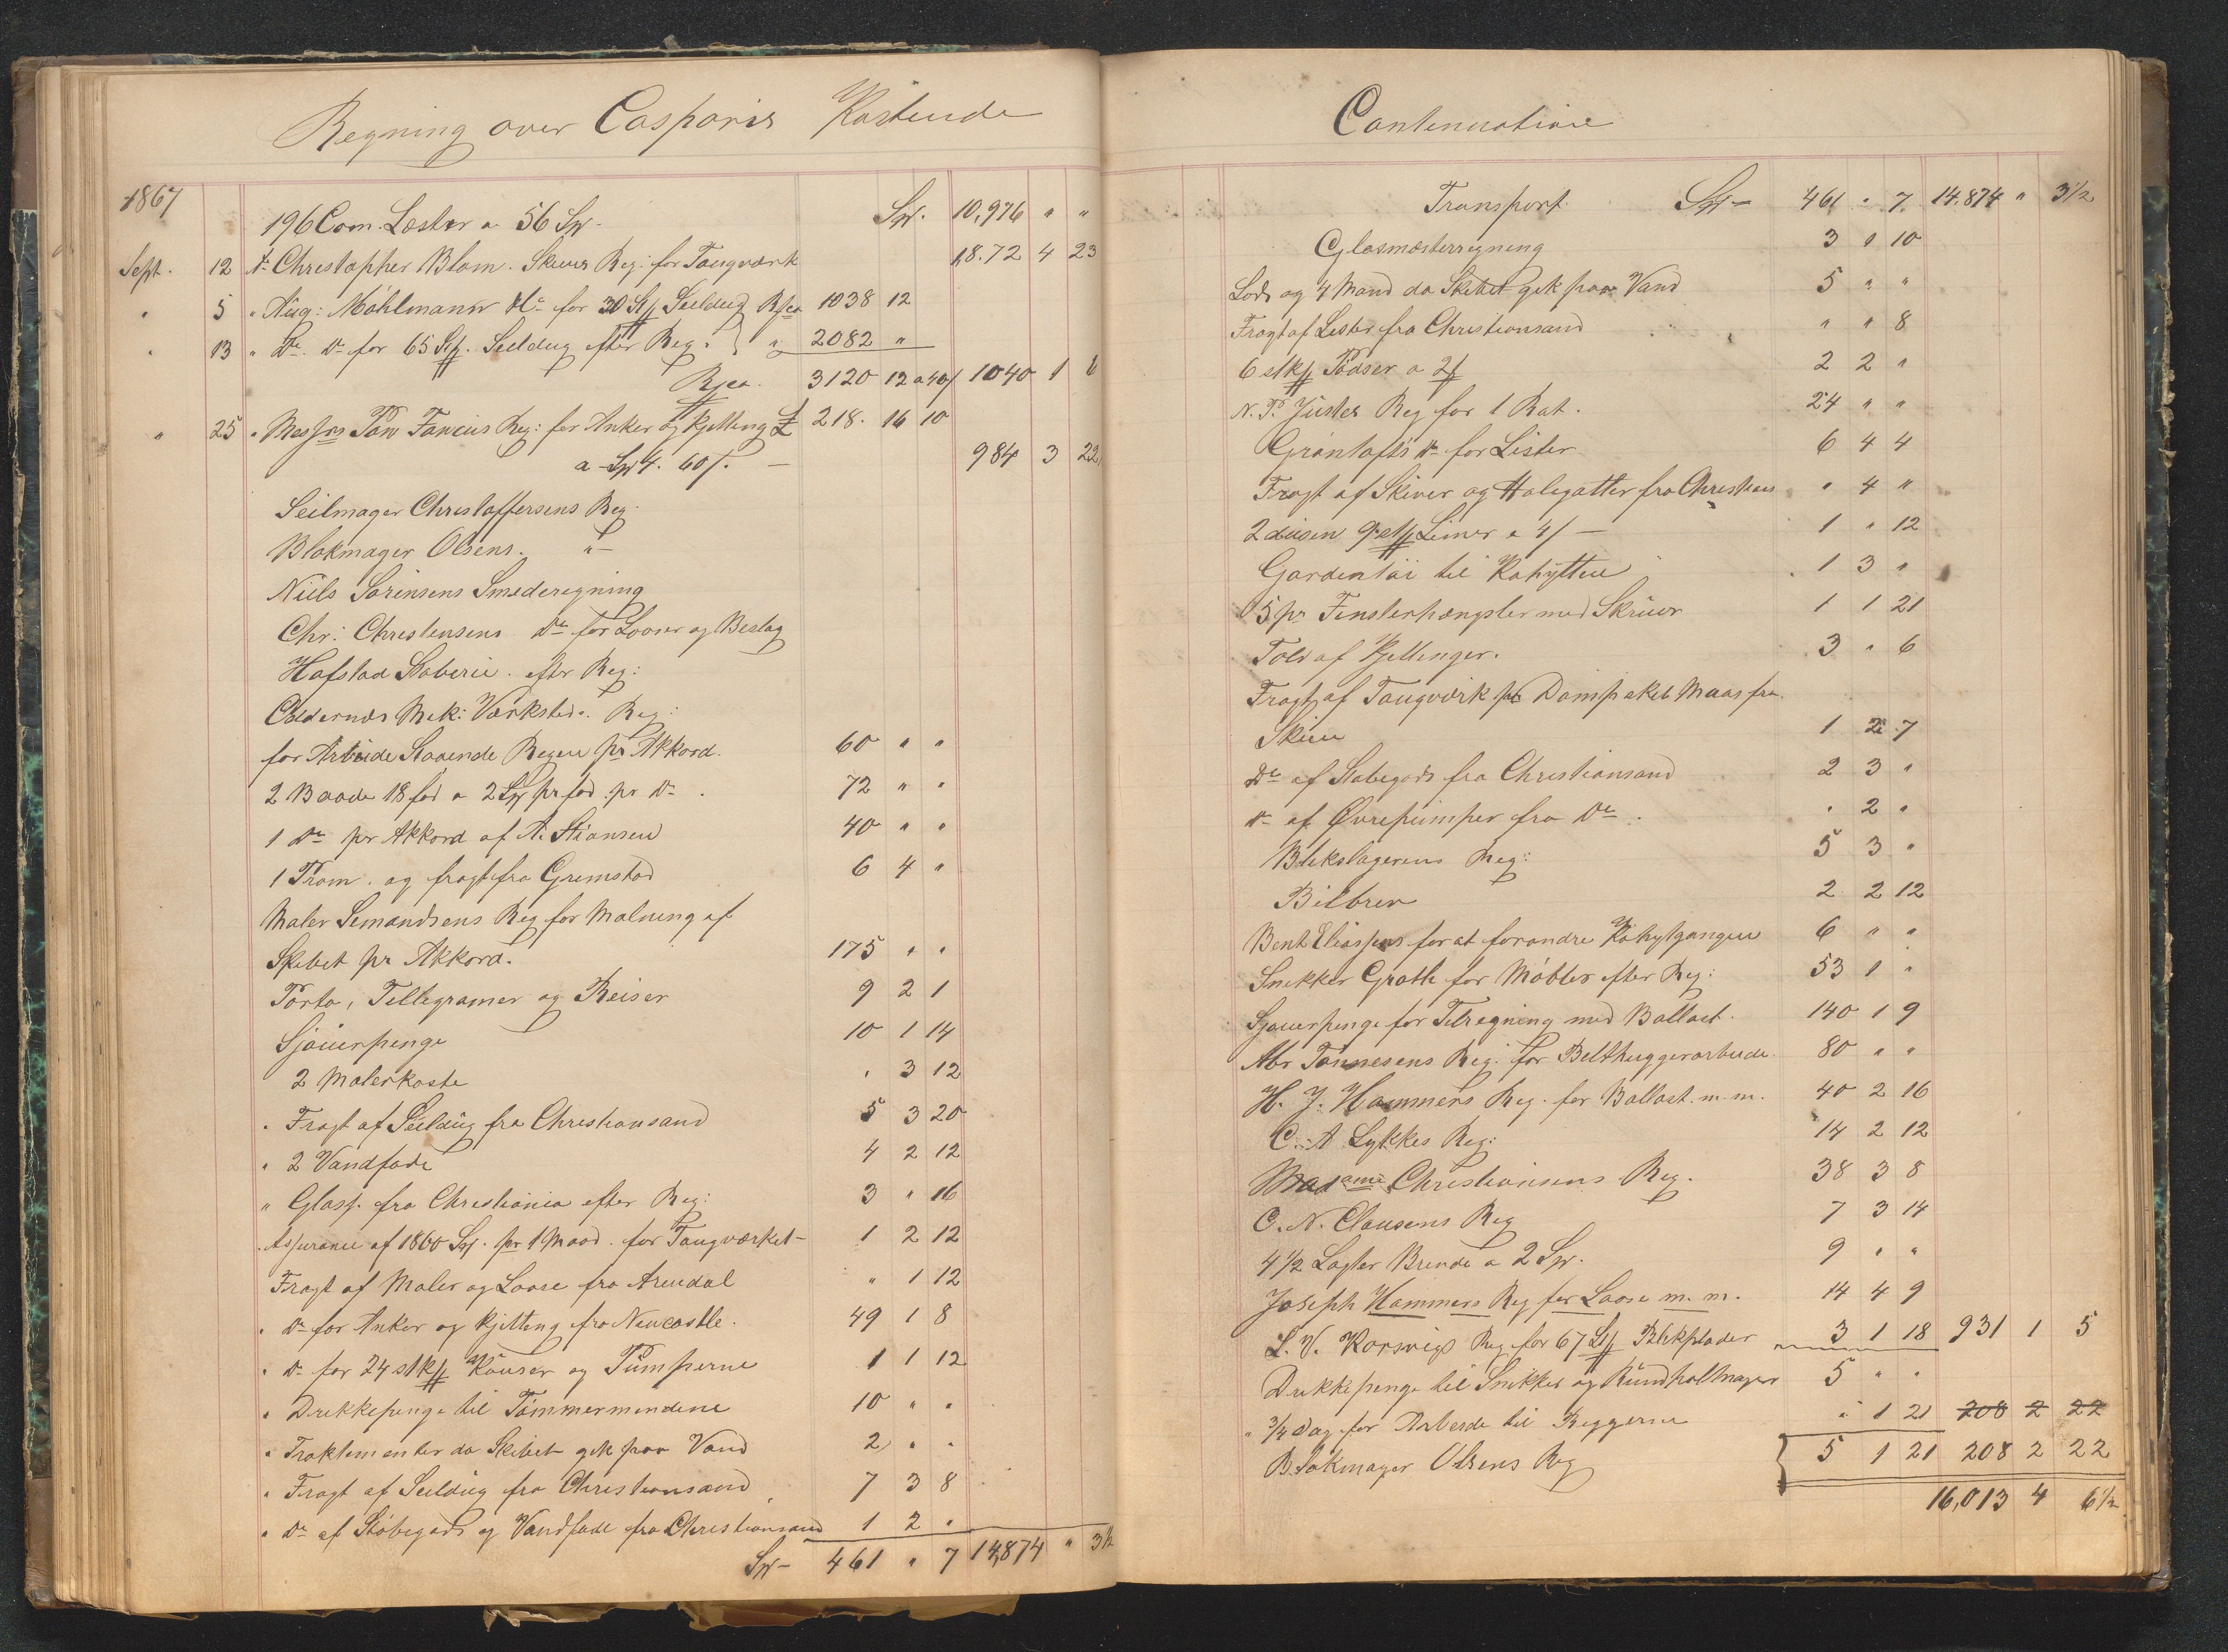 Regning over Casparis Kostende
1867
196 Com. Læster a 56 Sp. Sp. 10,976 " "
Sept. 12 Ar Christopher Blom. Skiens Reg: for Tougværk 18.72 4 23
" 5 " Aug: Möhlmann Do for 30 St Seildug Rco 1038 12
" 13 " Do Do for 65 St. Seildug efter Reg: " 2082 "
Rco. 3120 12 a 40/ 1040 1 6
" 25 " Messrs Fancius Reg: for Anker og Kjetting £ 218. 16 10
a Sp 4. 60/. — 984 3 22
Seilmager Christoffersens Reg.
Blokmager Olsens. " —
Niels Sörensens Smederegning
Chr: Christensens Do for Looser og Beslag
Hafstad Støberie. efter Reg:
Værksteds. Reg:
for Arbeide Staaende Regen pr Akkord. 60 " "
2 Baade 18 fod a 2 Sp pr fod pr Do. 72 " "
1 Do pr Akkord af A. Stiansen 40 " "
1 Pram. og fragt fra Gremstad 6 4 "
Maler Semandsens Reg for Malning af
Skibet pr Akkord. 175 " "
Porto, Tellegramer og Reiser 9 2 1
Sjöuerpenge 10 1 14
2 Malerkoste " 3 12
" Fragt af Seildug fra Christiansand 5 3 20
" 2 Vandfade 4 2 12
" Glass. fra Christiania efter Reg: 3 " 16
" Assurance af 1800 Sp. pr 1 Maad. for Tougværket — 1 2 12
Fragt af Maler og Loose fra Arendal " 1 12
" Do for Anker og Kjetting fra Newcastle. 49 1 8
" Do for 24 stk Kouser og Pumperne 1 1 12
" Drekkepenge til Tömmermendene 10 " "
" Traktementer da Skibet gik paa Vand 2 " "
" Fragt af Seildug fra Christiansand 7 3 8
" Do af Støbegods og Vandfade fra Christiansand 1 2 "
Sp — 461 " 7 14,874 " 3½
Contenuatione
Transport Sp — 461 " 7. 14.874 " 3½
Glasmesterregning 3 " 10
Lods og 4 Mand da Skibet gik paa Vand 5 " "
Fragt af Lister fra Christiansand " " 8
6 stk Pödser a 2 2 2 "
N. P. Justes Reg for 1 Rat. 24 " "
Gröntofts Do for Lister 6 4 4
Fragt af Skiver og Halegatter fra Christians " 4 "
2 dusin 9 Limer a 4/ — 1 " 12
Gardentöi til Kahytten 1 3 "
5 pr Finsterhængsler med Skruer 1 1 21
Told af Kjettinger. 3 " 6
Fragt af Tougværk pr Dampskib Maas fra
Skien 1 2 7
Do af Støbegods fra Christiansand 2 3 "
Do af Ørepumper fra Do. " 2 "
Blekslagerens Reg: 5 3 "
Bilbrev 2 2 12
Bent Eliassens for at forandre Kahytgangen 6 " "
Snekker Groth for Möbler efter Reg: 53 1 "
Sjouerpenge for Tilregning med Ballast. 140 1 9
Abr Tönnesens Reg: for Belthuggerarbeide 80 " "
H. J. Hammers Reg. for Ballast. m.m. 40 2 16
C. A Lykkes Reg: 14 2 12
Madame Christiansens Reg. 38 3 8
O. N. Clausens Reg 7 3 14
4½ Lagter Brende a 2 Sp. 9 " "
Joseph Hammers Reg for Laase m. m. 14 4 9
L. V. Korsvigs Reg for 67 St Blekplader 3 1 18 931 1 5
Drekkepenge til Snikker og Rundholtmager 5 " "
" ¾ Dag for Arbeide til Reggerne " 1 21 208 2 22
Blokmager Olsens Reg 5 1 21 208 2 22
16,013 4 6½